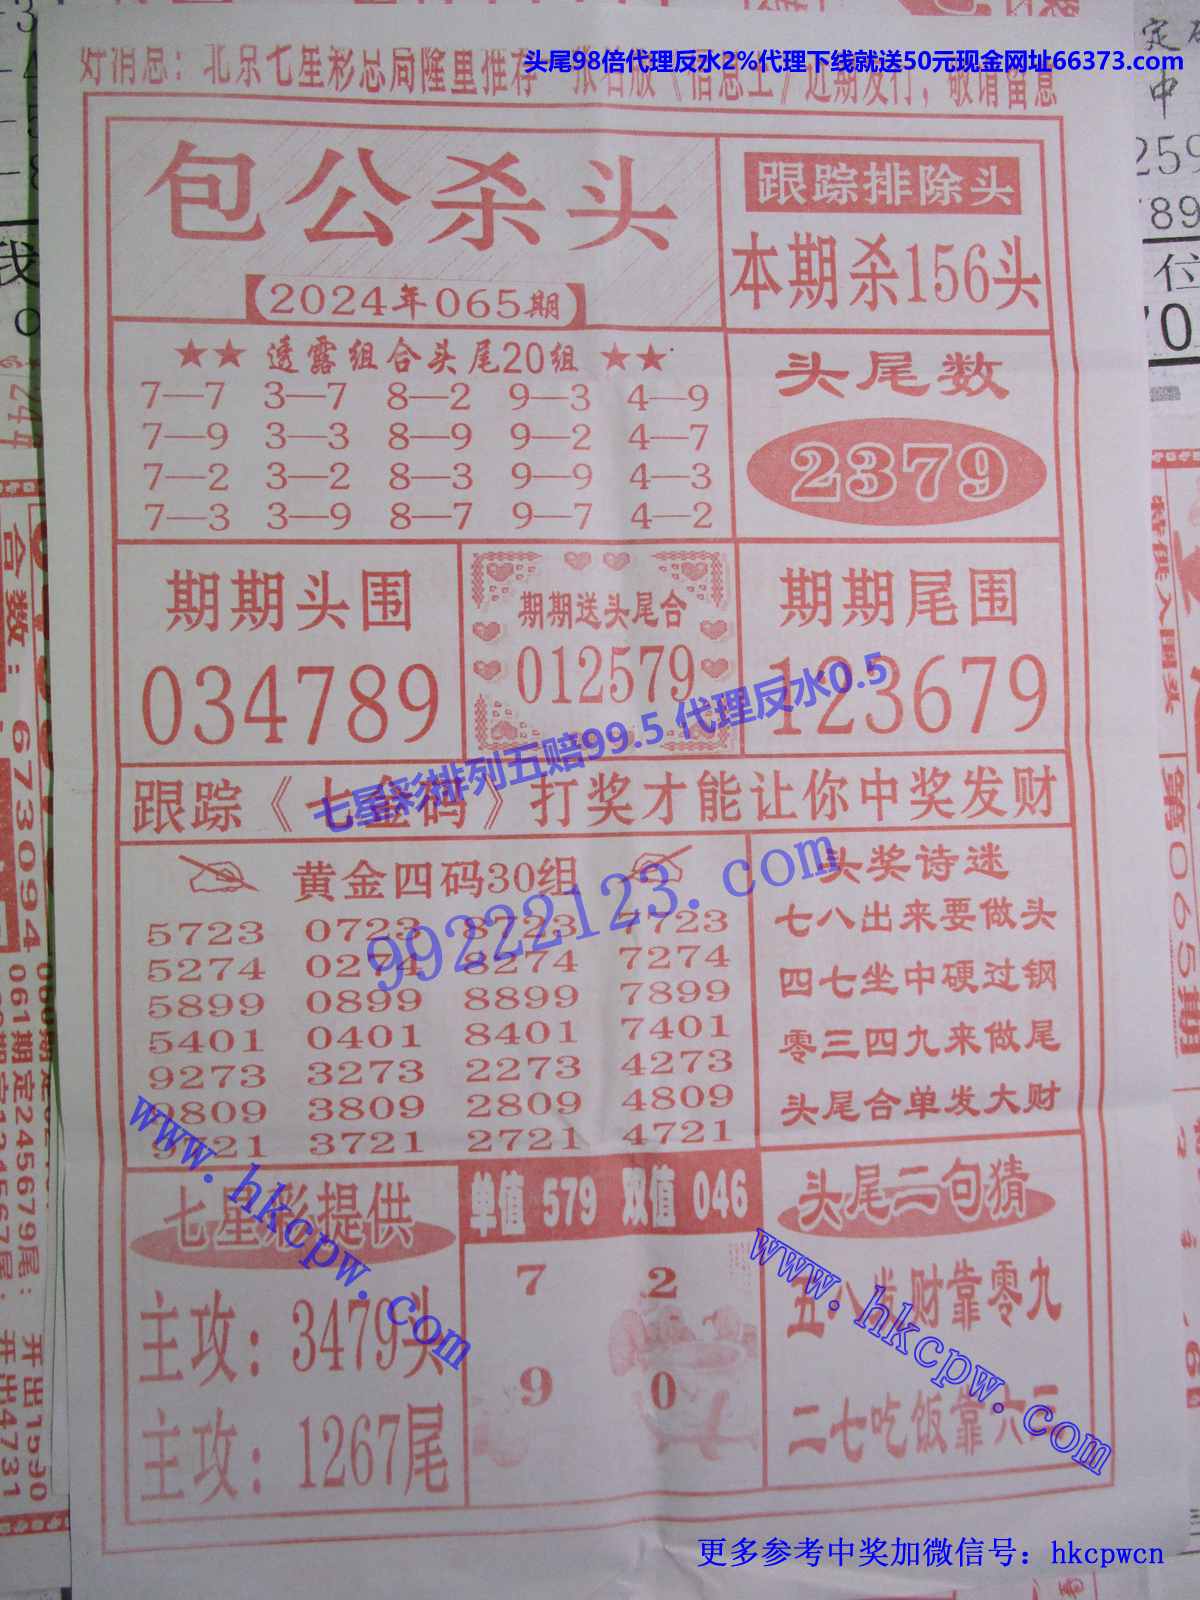 头尾98倍代理反水2%代理下线就送50元现金网址66373.com
好消息：北京七星彩总局隆里推荐一张
近期发行，敬请留意
包公杀头
【2024年065期】
跟踪排除头
本期杀156头
★★ 透露组合头尾20组 ★★
7—7 3—7 8—2 9—3 4—9
7—9 3—3 8—9 9—2 4—7
7—2 3—2 8—3 9—9 4—3
7—3 3—9 8—7 9—7 4—2
头尾数
2379
期期头围
034789
期期送头尾合
012579
期期尾围
123679
七星彩排列五赔99.5 代理反水0.5
跟踪《七金码》打奖才能让你中奖发财
黄金四码30组
5723 0723 8723 7723
5274 0274 8274 7274
5899 0899 8899 7899
5401 0401 8401 7401
9273 3273 2273 4273
9809 3809 2809 4809
9721 3721 2721 4721
99222123.com
头奖诗迷
七八出来要做头
四七坐中硬过钢
零三四九来做尾
头尾合单发大财
www.hkcpw.com
七星彩提供
主攻：3479头
主攻：1267尾
单值 579 双值 046
7 2
9 0
头尾二句猜
五八发财靠零九
二七吃饭靠六三
www.hkcpw.com
更多参考中奖加微信号：hkcpwcn
合数：673094
061期定245679尾：
开出1590
开出4731
第065期